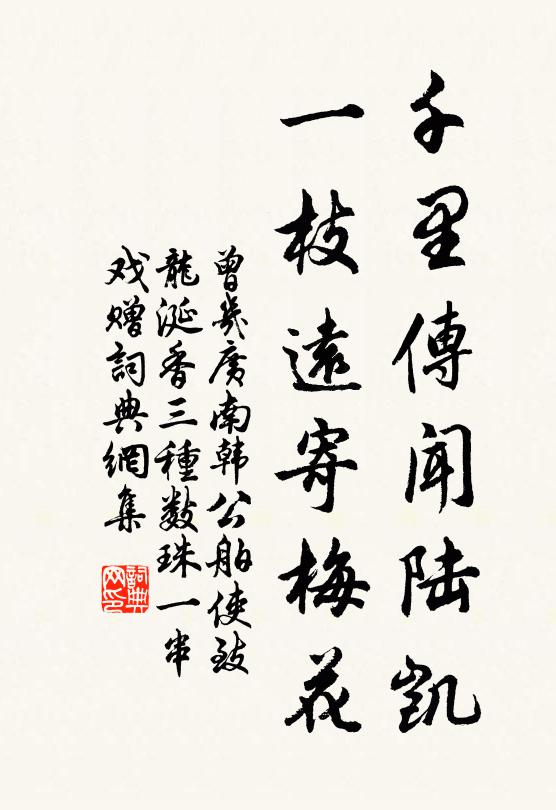 千里傳聞陆凱
一枝遠寄梅花
曾幾廣南韩公舶使致
龍涎香三種数珠一串
戏赠詞典網集
詞典网印